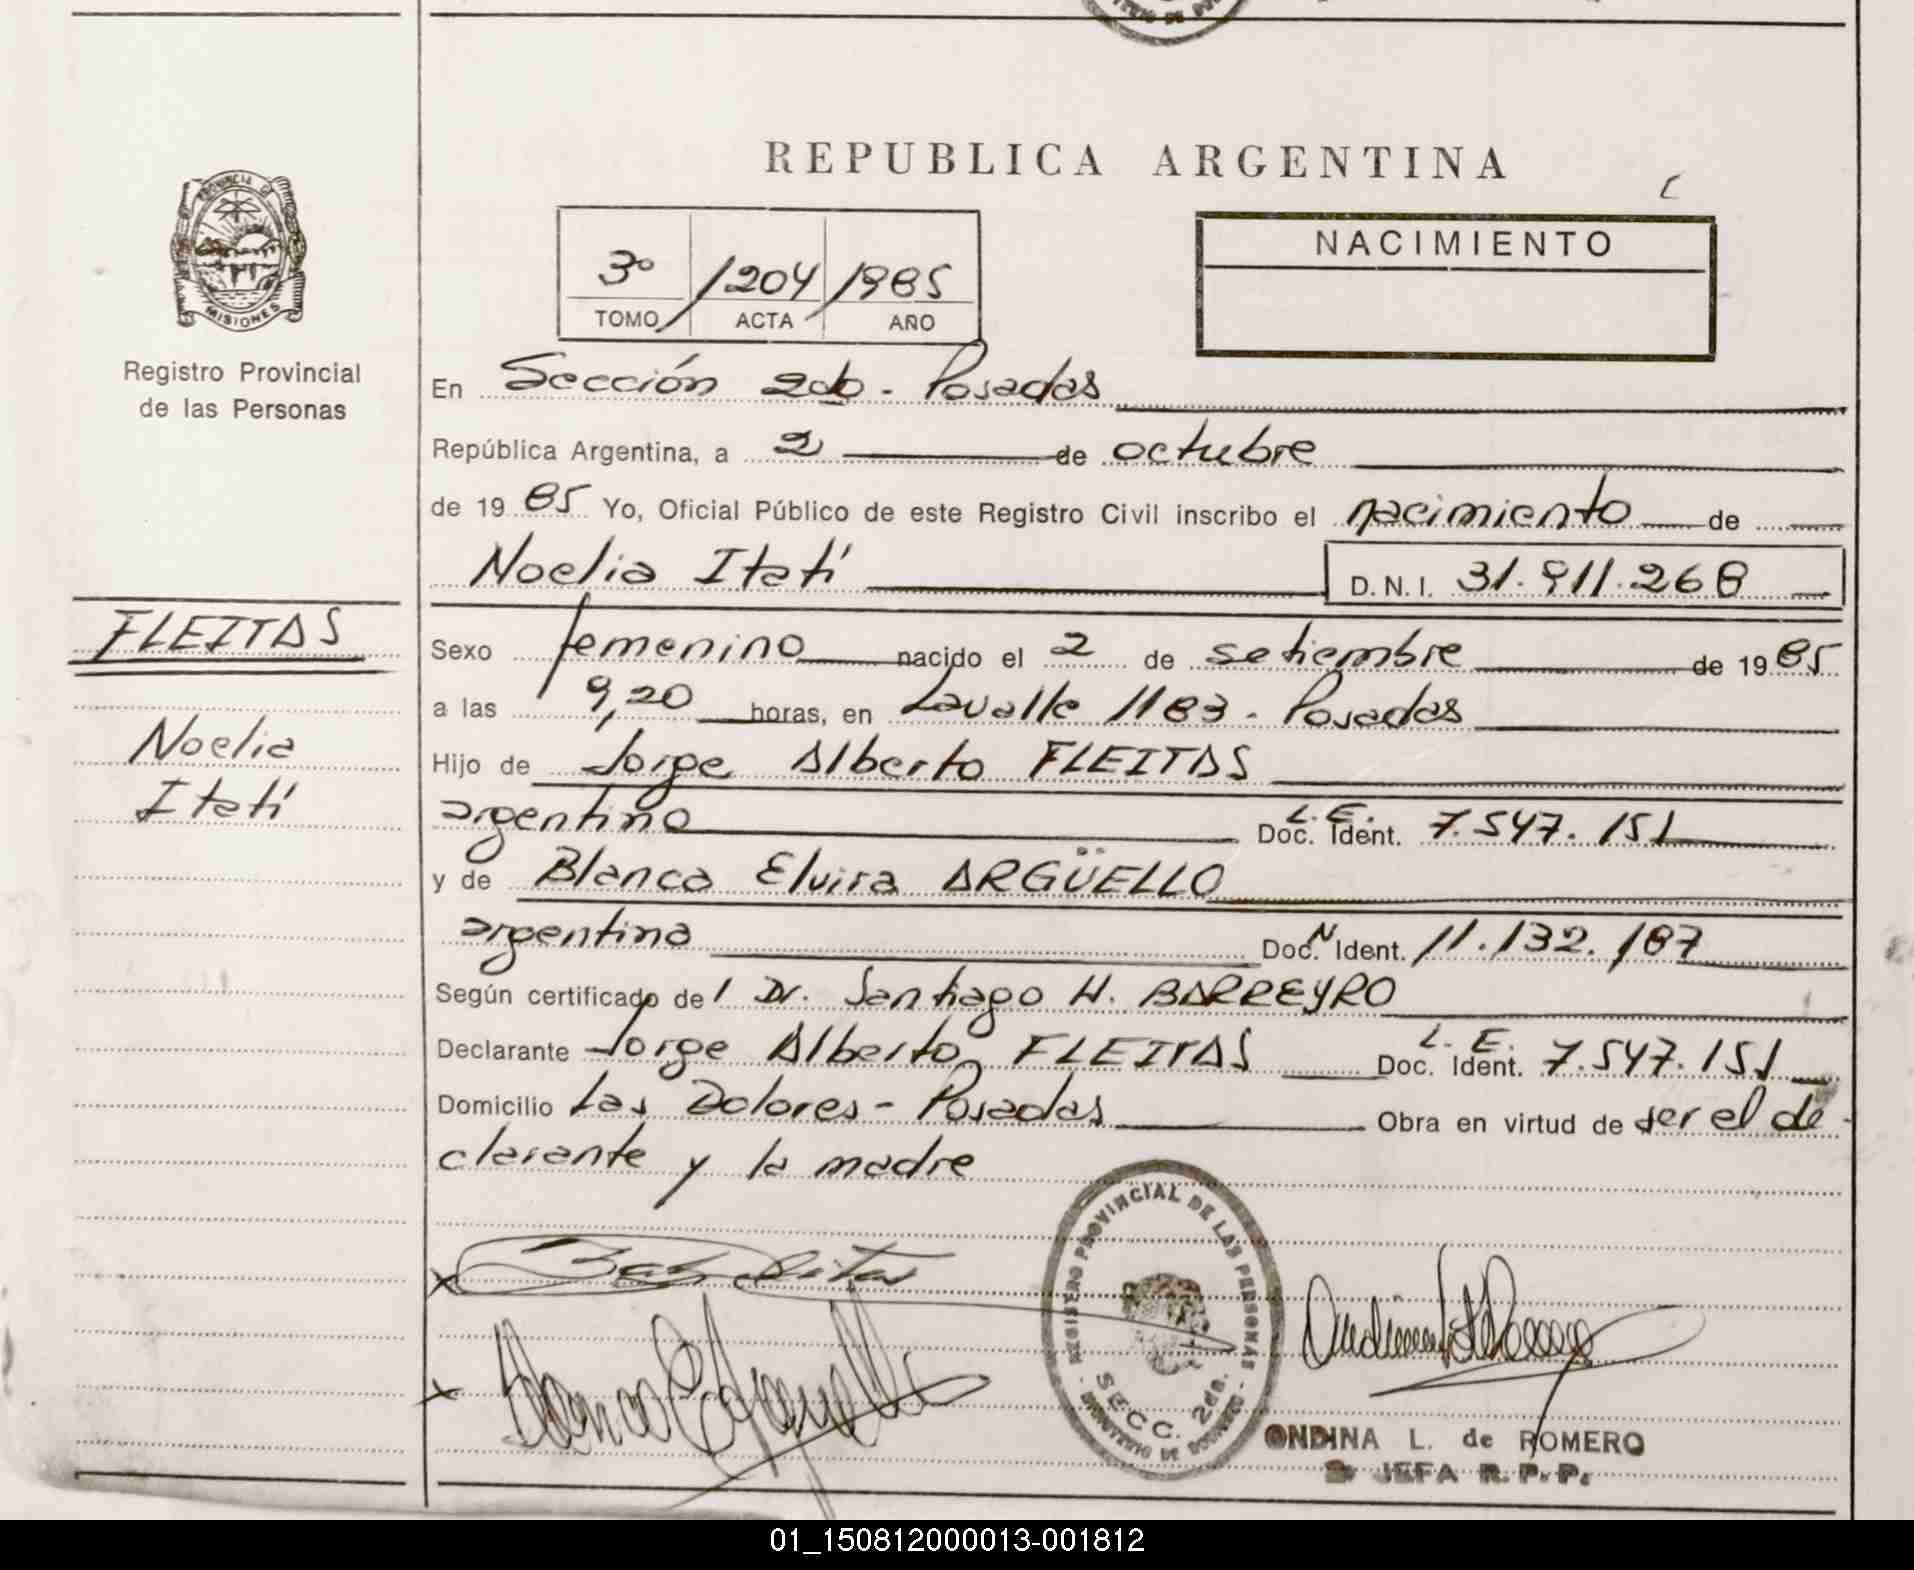 REPUBLICA ARGENTINA
PROVINCIA DE
MISIONES
Registro Provincial
de las Personas
3º /204/ 1985
TOMO ACTA AÑO
NACIMIENTO
En Sección 2da - Posadas
República Argentina, a 2 de octubre
de 19 85 Yo, Oficial Público de este Registro Civil inscribo el nacimiento de
Noelia Itatí D.N.I. 31.911.268
FLEITAS
Noelia
Itatí
Sexo femenino nacido el 2 de setiembre de 19 85
a las 9,20 horas, en Lavalle 1183 - Posadas
Hijo de Jorge Alberto FLEITAS
argentino L.E. Doc. Ident. 7.547.151
y de Blanca Elvira ARGÜELLO
argentina Doc. N Ident. 11.132.187
Según certificado del Dr. Santiago H. BARREYRO
Declarante Jorge Alberto FLEITAS L.E. Doc. Ident. 7.547.151
Domicilio Las Dolores - Posadas Obra en virtud de ser el de-
clarante y la madre
REGISTRO PROVINCIAL DE LAS PERSONAS
SECC. 2da.
MINISTERIO DE GOBIERNO
ONDINA L. de ROMERO
JEFA R. P. P.
01_150812000013-001812